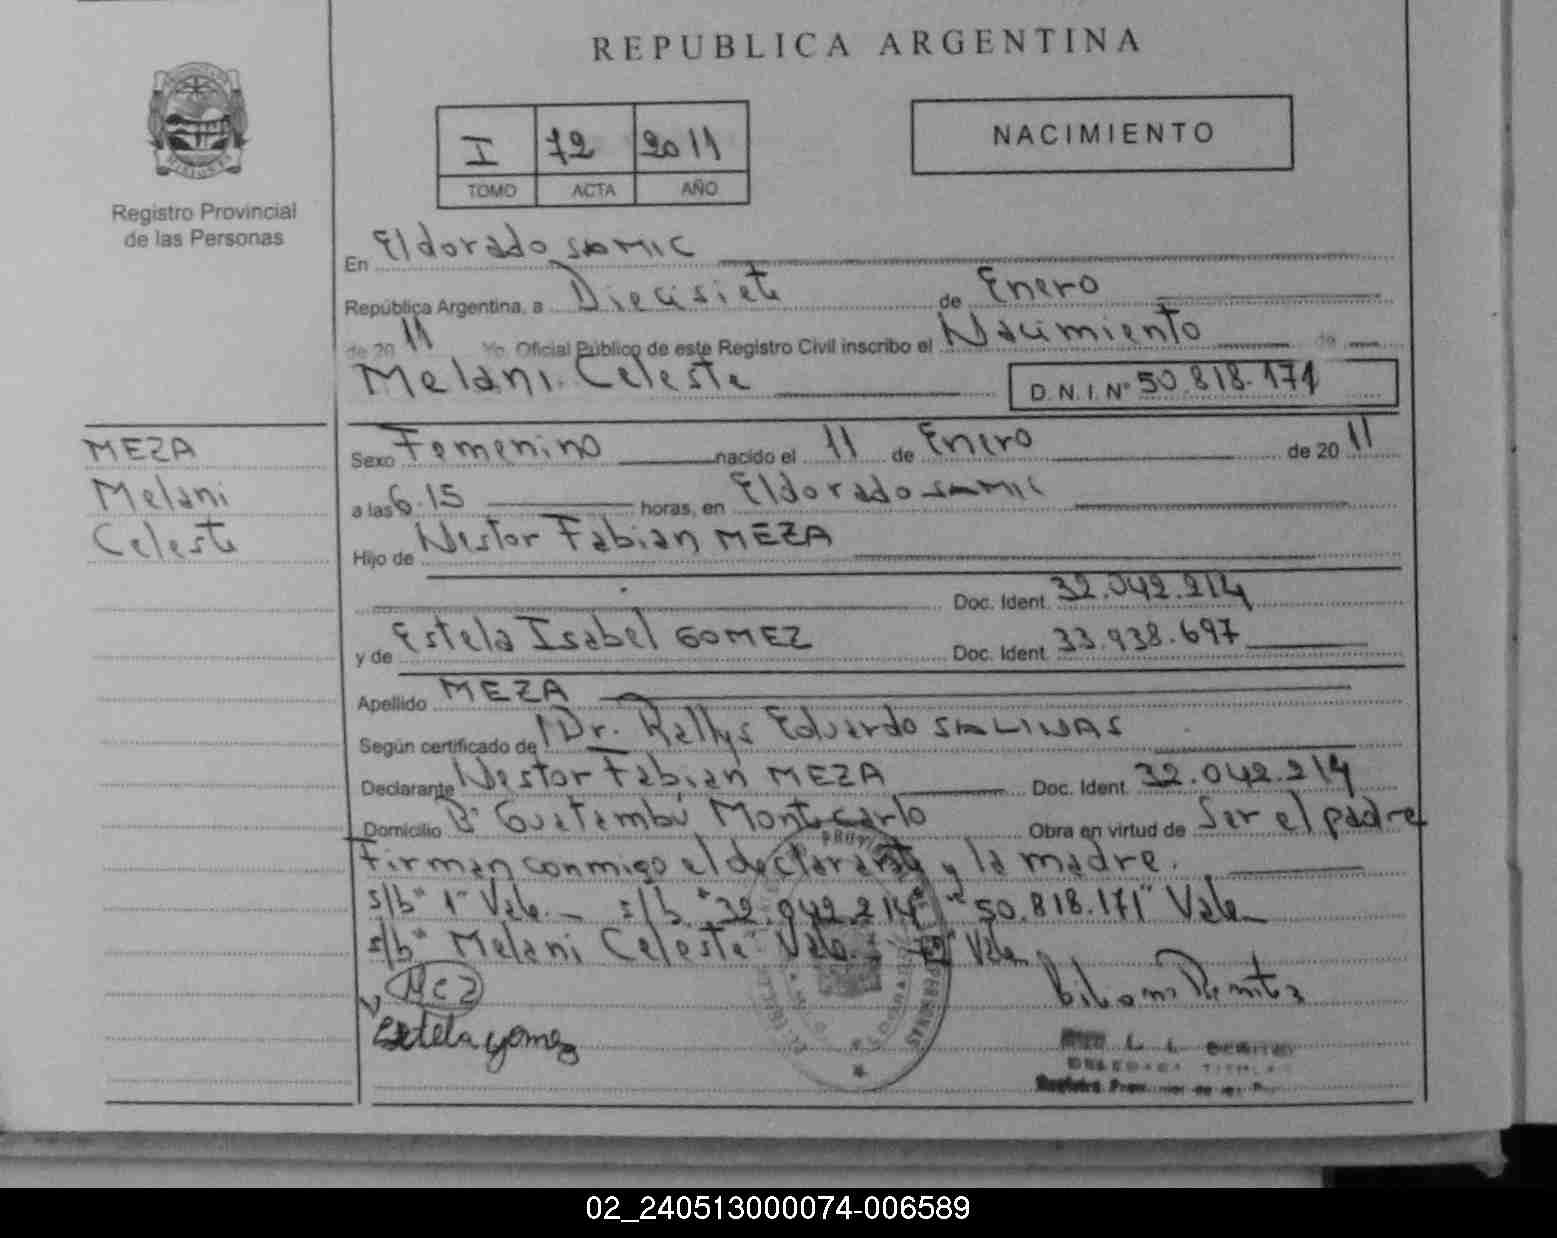 REPUBLICA ARGENTINA
Registro Provincial
de las Personas
I 72 2011
TOMO ACTA AÑO
NACIMIENTO
En Eldorado SAMIC
República Argentina, a Diecisiete de Enero
de 2011 Yo, Oficial Público de este Registro Civil inscribo el Nacimiento de
Melani Celeste D.N.I. Nº 50.818.171
MEZA
Melani
Celeste
Sexo Femenino nacido el 11 de Enero de 2011
a las 6.15 horas, en Eldorado SAMIC
Hijo de Nestor Fabian MEZA
Doc. Ident. 32.042.214
y de Estela Isabel GOMEZ Doc. Ident. 33.938.697
Apellido MEZA
Según certificado de Dr. Rallys Eduardo SALINAS
Declarante Nestor Fabian MEZA Doc. Ident. 32.042.214
Domicilio Bº Guatambú Montecarlo Obra en virtud de Ser el padre
Firman conmigo el declarante y la madre.
s/b "1" Vale s/b "32.042.214" "50.818.171" Vale
s/b "Melani Celeste" Vale Vale
Estela gomez
PERSONAS
02_240513000074-006589